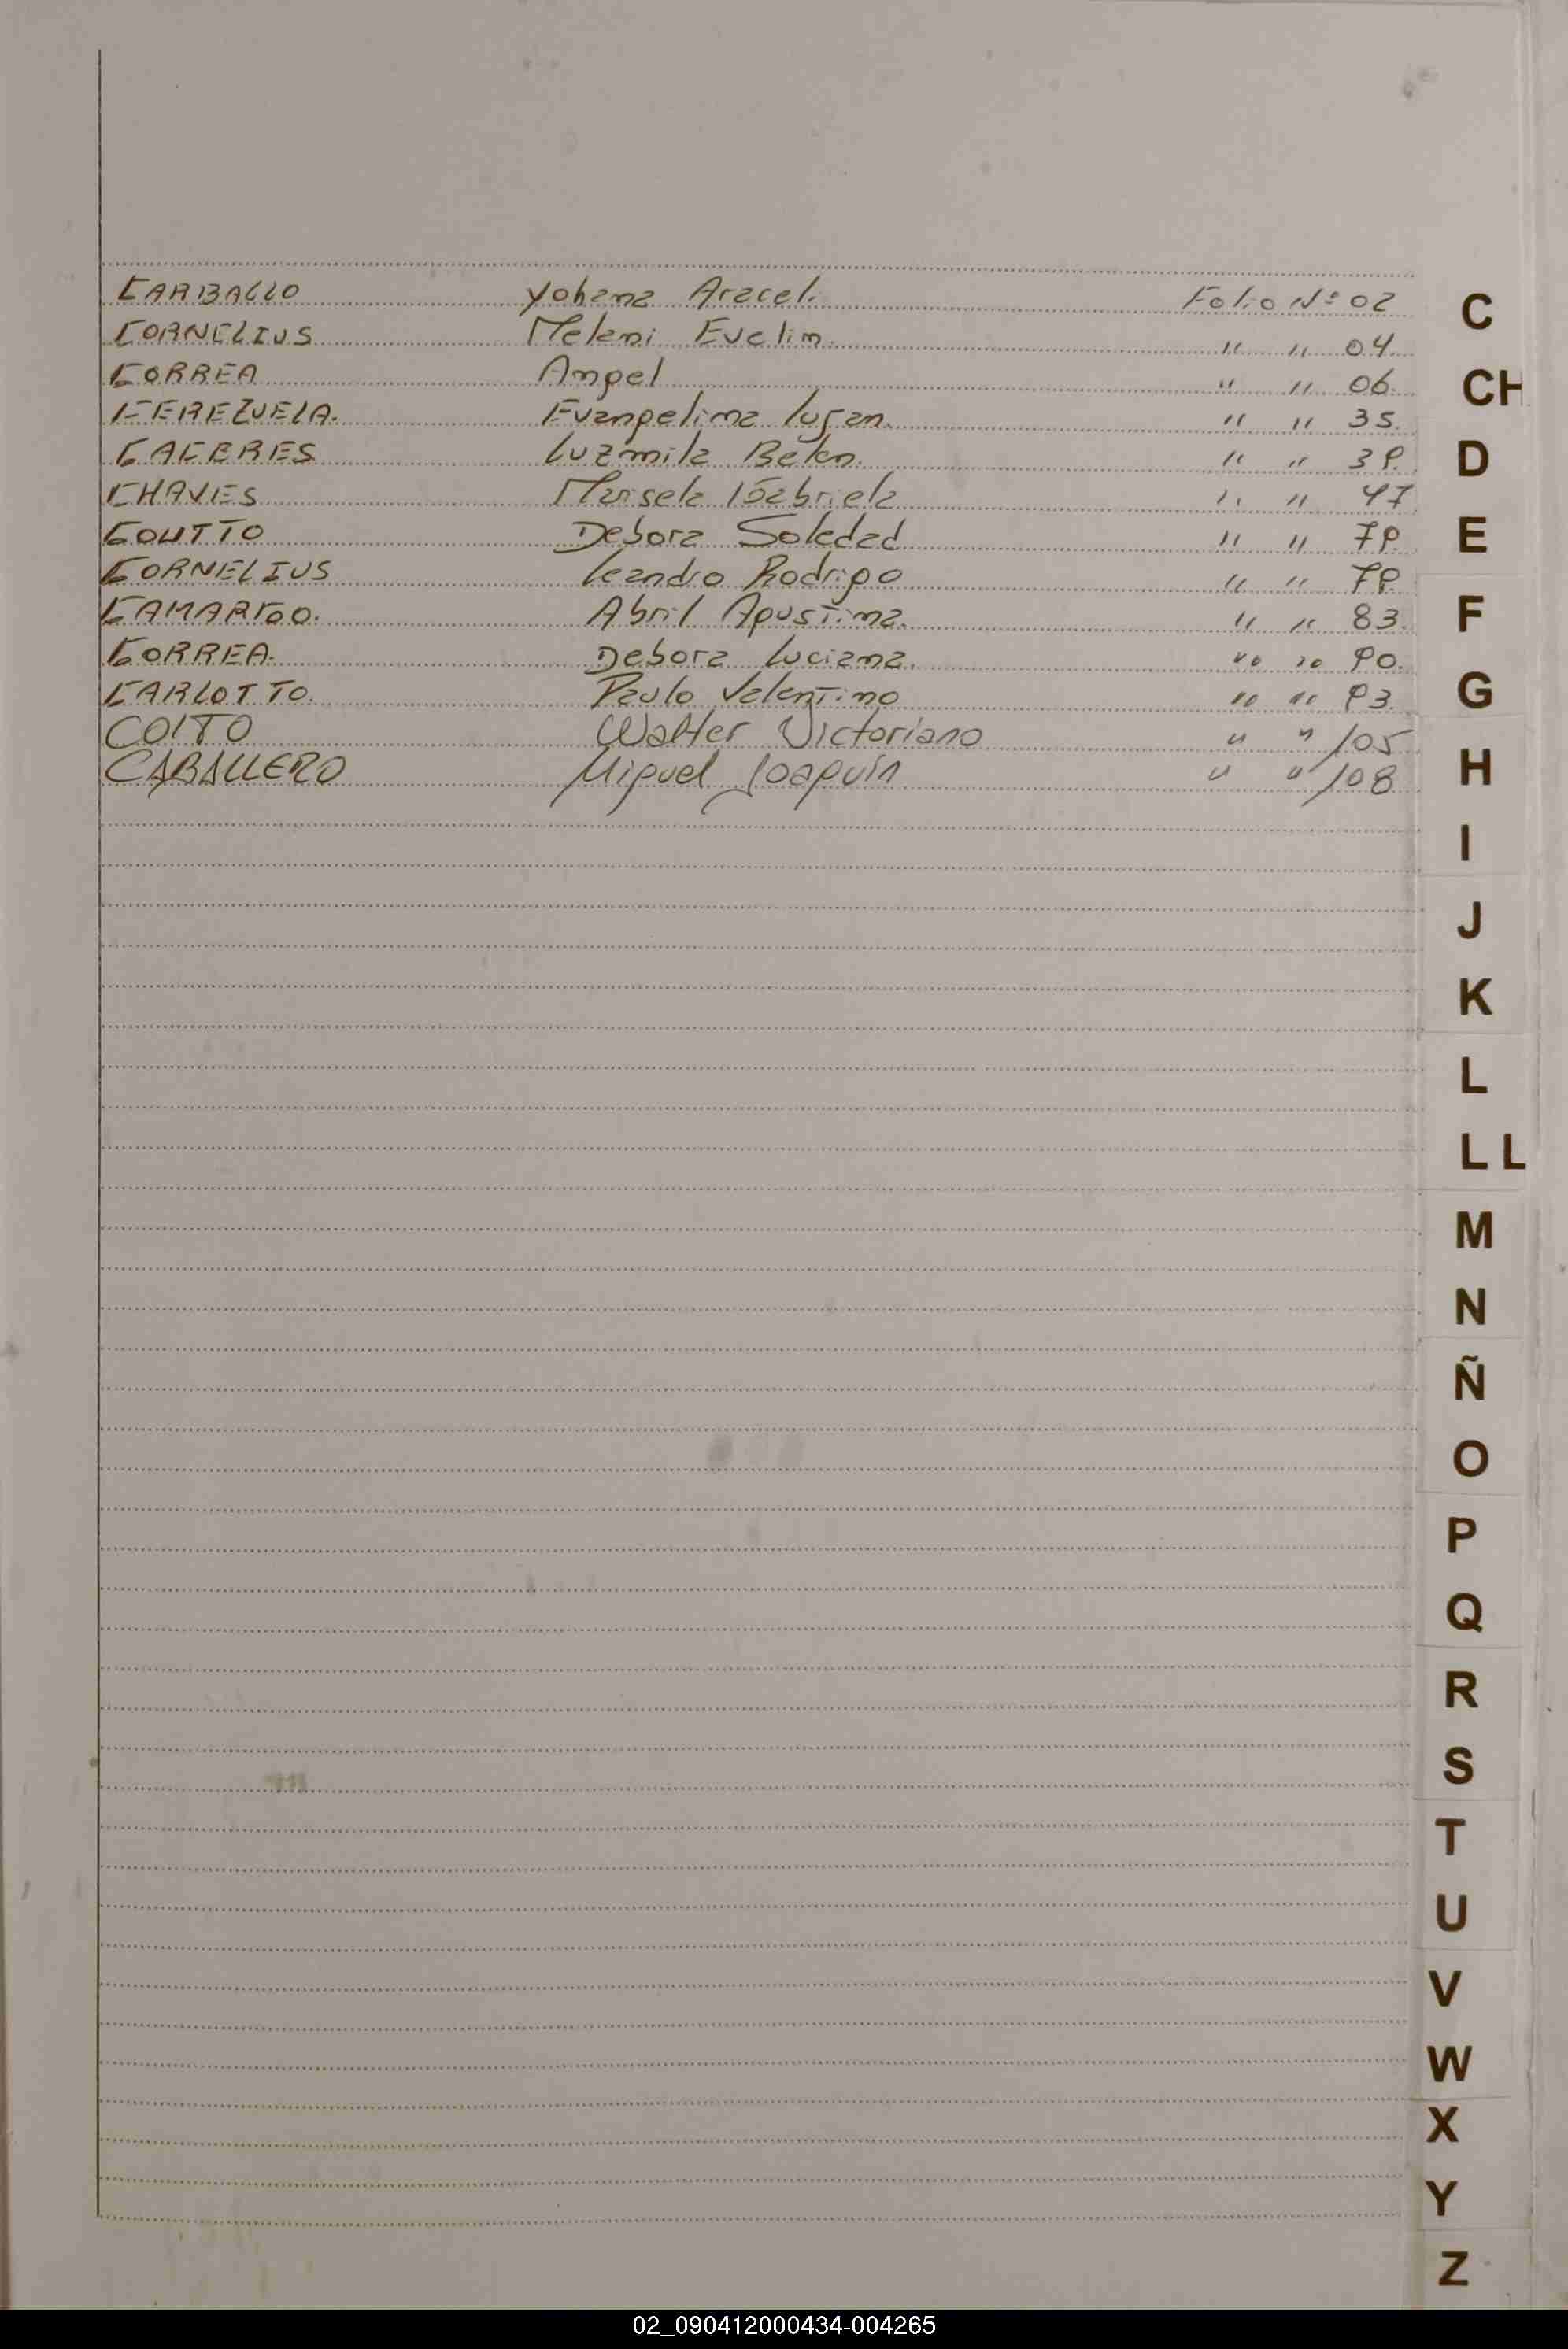 CARBALLO Yohana Araceli Folio Nº 02
CORNELIUS Melani Evelin " " 04
CORREA Angel " " 06
CEREZUELA Evangelina Lujan " " 35
CACERES Luzmila Belen " " 39
CHAVES Marisela Gabriela " " 47
COUTTO Debora Soledad " " 79
CORNELIUS Leandro Rodrigo " " 79
CAMARGO Abril Agustina " " 83
CORREA Debora Luciana " " 90
CARLOTTO Paulo Valentino " " 93
COITO Walter Victoriano " " 105
CABALLERO Miguel Joaquín " " 108
C
CH
D
E
F
G
H
I
J
K
L
LL
M
N
Ñ
O
P
Q
R
S
T
U
V
W
X
Y
Z
02_090412000434-004265